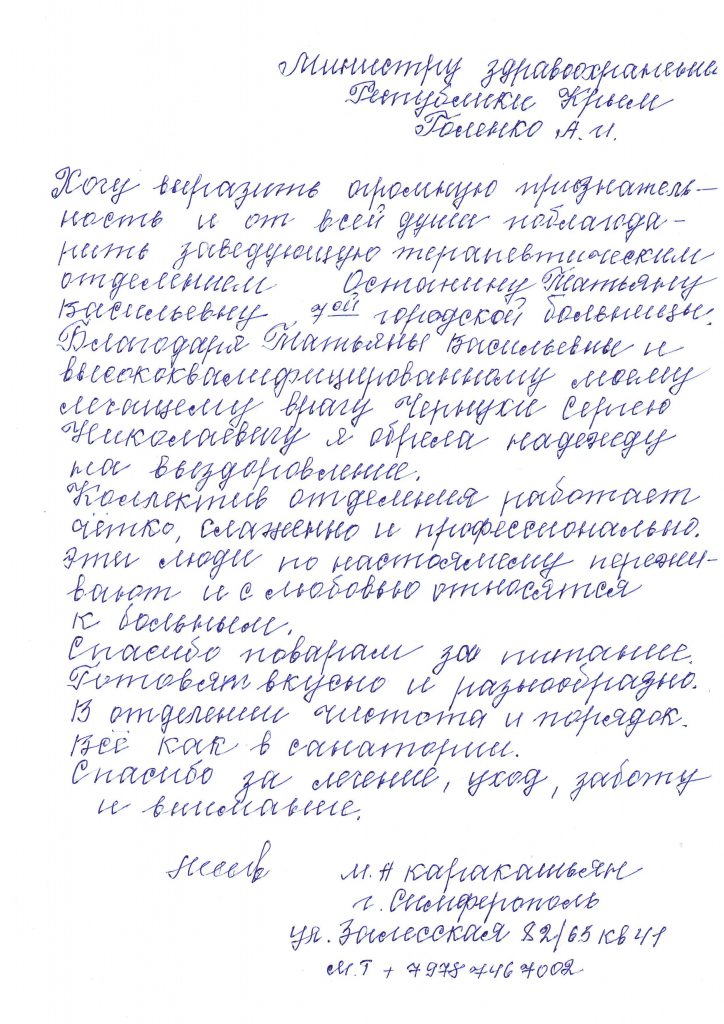 Министру здравоохранения
Республики Крым
Голенко А.И.
Хочу выразить огромную признатель-
ность и от всей души поблагода-
рить заведующую терапевтическим
отделением Останину Татьяну
Васильевну 7ой городской больницы.
Благодаря Татьяны Васильевны и
высококвалифицированному моему
лечащему врачу Чернухи Сергею
Николаевичу я обрела надежду
на выздоровление.
Коллектив отделения работает
чётко, слаженно и профессионально.
Эти люди по настоящему пережи-
вают и с любовью относятся
к больным.
Спасибо поварам за питание.
Готовят вкусно и разнообразно.
В отделении чистота и порядок.
Всё как в санатории.
Спасибо за лечение, уход, заботу
и внимание.
М.А Каракашьян
г. Симферополь
ул. Залесская 82/65 кв 41
М.Т + 7978 746 7002